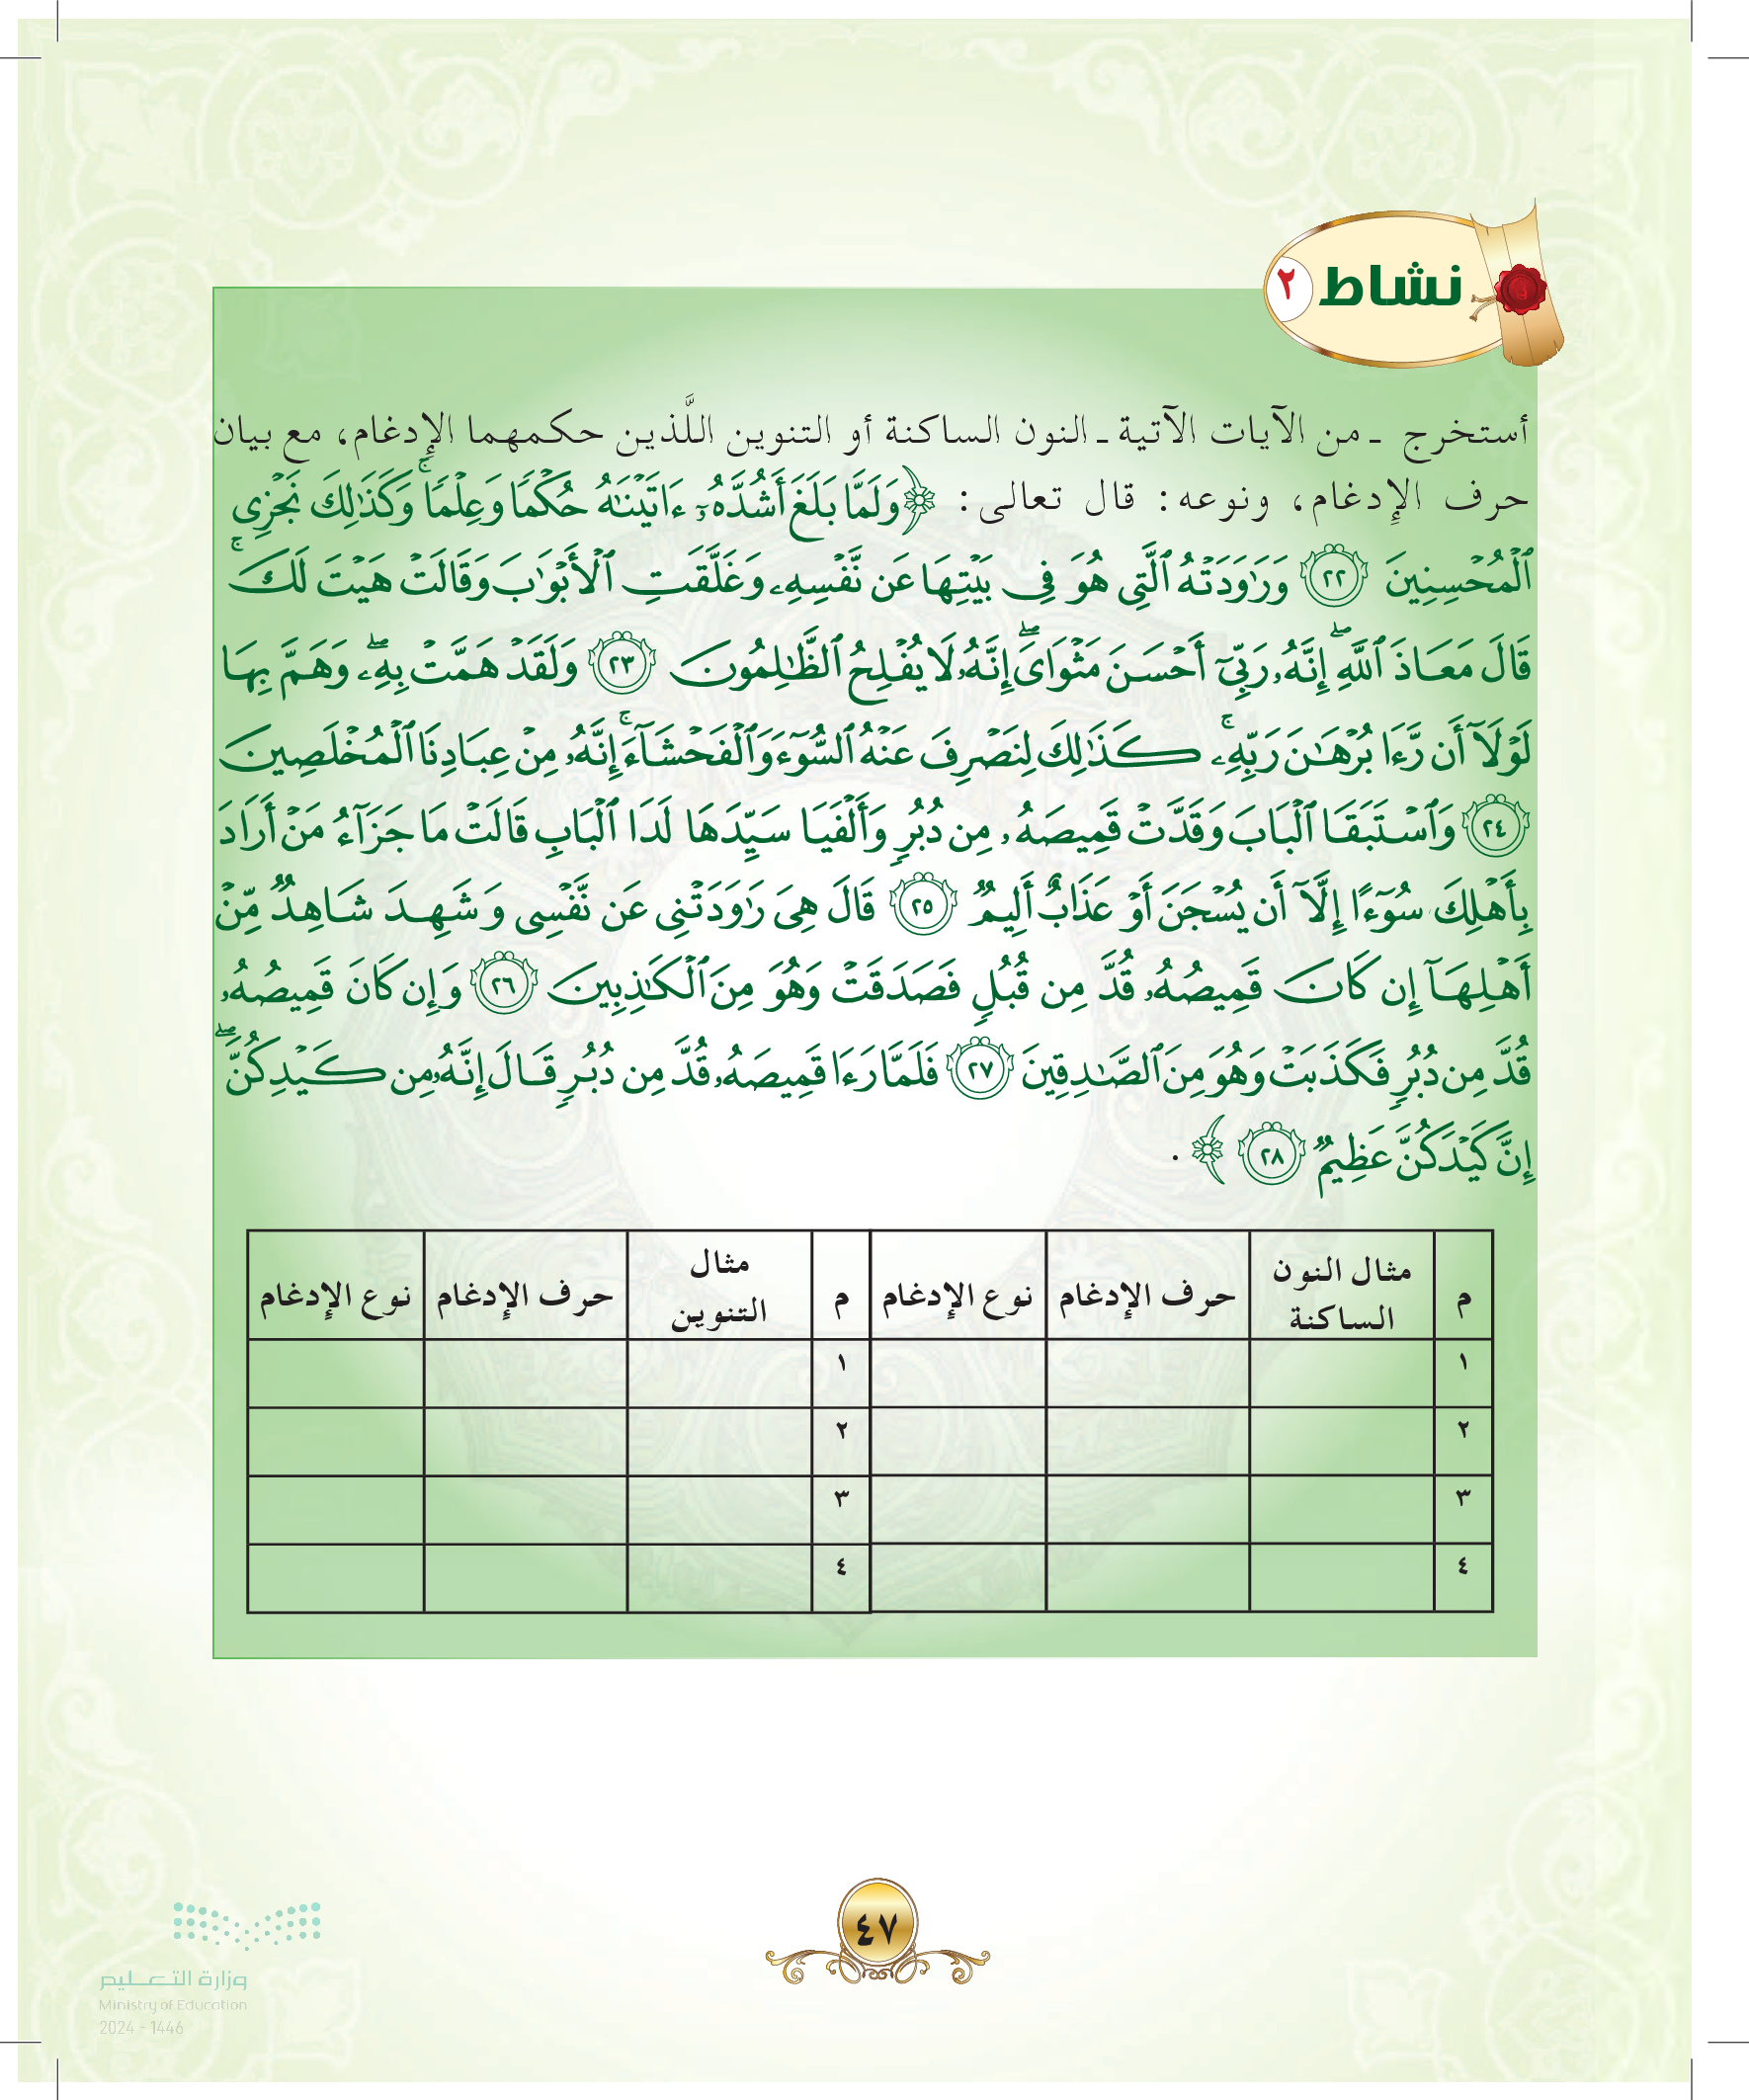 نشاط ٢
أستخرج ـ من الآيات الآتية ـ النون الساكنة أو التنوين اللَّذين حكمهما الإدغام، مع بيان
حرف الإدغام، ونوعه: قال تعالى: ﴿وَلَمَّا بَلَغَ أَشُدَّهُۥٓ ءَاتَيۡنَٰهُ حُكۡمٗا وَعِلۡمٗاۚ وَكَذَٰلِكَ نَجۡزِي
ٱلۡمُحۡسِنِينَ ٢٢ وَرَٰوَدَتۡهُ ٱلَّتِي هُوَ فِي بَيۡتِهَا عَن نَّفۡسِهِۦ وَغَلَّقَتِ ٱلۡأَبۡوَٰبَ وَقَالَتۡ هَيۡتَ لَكَۚ
قَالَ مَعَاذَ ٱللَّهِۖ إِنَّهُۥ رَبِّيٓ أَحۡسَنَ مَثۡوَايَۖ إِنَّهُۥ لَا يُفۡلِحُ ٱلظَّٰلِمُونَ ٢٣ وَلَقَدۡ هَمَّتۡ بِهِۦۖ وَهَمَّ بِهَا
لَوۡلَآ أَن رَّءَا بُرۡهَٰنَ رَبِّهِۦۚ كَذَٰلِكَ لِنَصۡرِفَ عَنۡهُ ٱلسُّوٓءَ وَٱلۡفَحۡشَآءَۚ إِنَّهُۥ مِنۡ عِبَادِنَا ٱلۡمُخۡلَصِينَ
٢٤ وَٱسۡتَبَقَا ٱلۡبَابَ وَقَدَّتۡ قَمِيصَهُۥ مِن دُبُرٖ وَأَلۡفَيَا سَيِّدَهَا لَدَا ٱلۡبَابِۚ قَالَتۡ مَا جَزَآءُ مَنۡ أَرَادَ
بِأَهۡلِكَ سُوٓءًا إِلَّآ أَن يُسۡجَنَ أَوۡ عَذَابٌ أَلِيمٞ ٢٥ قَالَ هِيَ رَٰوَدَتۡنِي عَن نَّفۡسِي وَشَهِدَ شَاهِدٞ مِّنۡ
أَهۡلِهَآ إِن كَانَ قَمِيصُهُۥ قُدَّ مِن قُبُلٖ فَصَدَقَتۡ وَهُوَ مِنَ ٱلۡكَٰذِبِينَ ٢٦ وَإِن كَانَ قَمِيصُهُۥ
قُدَّ مِن دُبُرٖ فَكَذَبَتۡ وَهُوَ مِنَ ٱلصَّٰدِقِينَ ٢٧ فَلَمَّا رَءَا قَمِيصَهُۥ قُدَّ مِن دُبُرٖ قَالَ إِنَّهُۥ مِن كَيۡدِكُنَّۖ
إِنَّ كَيۡدَكُنَّ عَظِيمٞ ٢٨﴾.
م مثال النون الساكنة حرف الإدغام نوع الإدغام م مثال التنوين حرف الإدغام نوع الإدغام
١ ١
٢ ٢
٣ ٣
٤ ٤
٤٧
وزارة التعليم
Ministry of Education
2024 - 1446